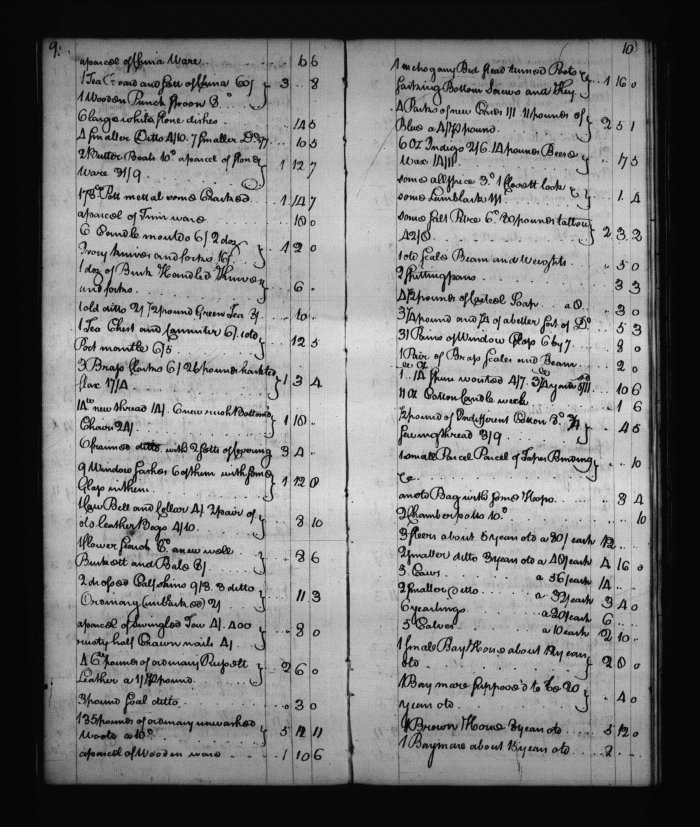 9:
a parcel of China Ware . . . . 6 6
1 Tea Board and Sett of China 60/ } 3 . . 8
1 Wooden Punch Spoon 8.ᵈ
6 large white stone dishes . . . . 14 5
4 Smaller Ditto 4/10. 7 Smaller Dᵒ
2 Butter Boats 10ᵈ a parcel of Stone } 1 12 7
Ware 31/9
Pott mettal some Cracked 1 14 7
a parcel of Tinn ware . . . . 10 0
6 2 doz
Ivory knives and forks 16/ } 1 2 0
1 doz of Buck Handled Knives
and forks } . . 6 .
1 old ditto 2/ 1/2 pound Green Tea . . 10 .
1 Tea Chest and Cannister 6/. 1 old } 12 5
Port mantle 6/5
3 Brass Cocks 6/ 26 pounds hackled } 1 3 4
flax 17/4
new thread 14/. 6 new rush Bottomed } 1 18 .
Chairs 24/.
6 framed ditto with 2 Setts of 3 4 .
9 Window Sashes 6 of them with some } 1 12 0
Glass in them
1 Cow Bell and Collar 4/. 2 pair of } 8 10
old leather Bags 4/10.
1 flower 8.ᵈ a new well } 8 6
Buckett and Bale 8/
2 dressed Calf skins 9/3. 3 ditto } 11 3
Ordinary (unbarked) 2/
a parcel of Swingled Tow 4/. 400 } . . 8 0
rusty half Crown nails 4/.
46 pounds of ordinary Russett } 2 6 0
Leather a 1/ pound
3 pound Seal ditto . . . . 3 0
135 pounds of ordinary unwashed } 5 12 11
Wooll a 10ᵈ
a parcel of Wooden ware . . . . 1 10 6
10
1 mehogany Bed Stead turned Posts } 1 16 0
Sacking Bottom Screws and Key
4 Packs of new Cards 1/1. 11 pounds of } 2 5 1
Blue a 4/ pound
6 Oz Indigo 2/6. 14 pounds Bees } 17 5
Wax 14/11.
some allspice 3.ᵈ 1 lock } 1. 4
some Lamblack 1/1
some Salt Petre 6ᵈ. 80 pounds tallow } 2 3. 2
42/8
1 old Scales Beam and Weights . . . . 5 0
2 Spitting pans . . . . 3 3
4 1/2 pounds of Casteel Soap . . a 8. . . 3 0
pound and of a better Sort of Dᵒ 5 3
31 Pains of Window Glass 6 by 7 . . 8 0
1 Pair of Brass Scales and Beam . . 2 0
1 . . 14 worsted 4/7. 5/11 10 6
11 Oz Cotton Candle week . . . 1 6
pound of Indifferent Cotton } . . 4 5
Sewing thread 3/9.
1 small Parcel Parcel of Tapes Binding } . . 10
&c
an old Bag with some Hops . . . . 3 4
2 Chamber potts 10ᵈ . . . . 10
3 Steers about 5 years old a 80/ each 12 . . .
2 smaller ditto 3 years old a 48/ each 4 16 0
5 Cows . . . . a 56/ each 14 . . .
2 smaller Ditto . . . . a 32/ each 3 4 0
6 yearlings . . . . a 20/ each 6 . . .
5 Calves . . . . a 10 each 2 10 . .
1 small Bay Horse about 12 years } 2 8 0
old
1 Bay mare Supposed to be 20 } . . 4 0
years old
1 Brown Horse 8 years old . . . . 5 12 0
1 Bay mare about 15 years old . . 2 . . .